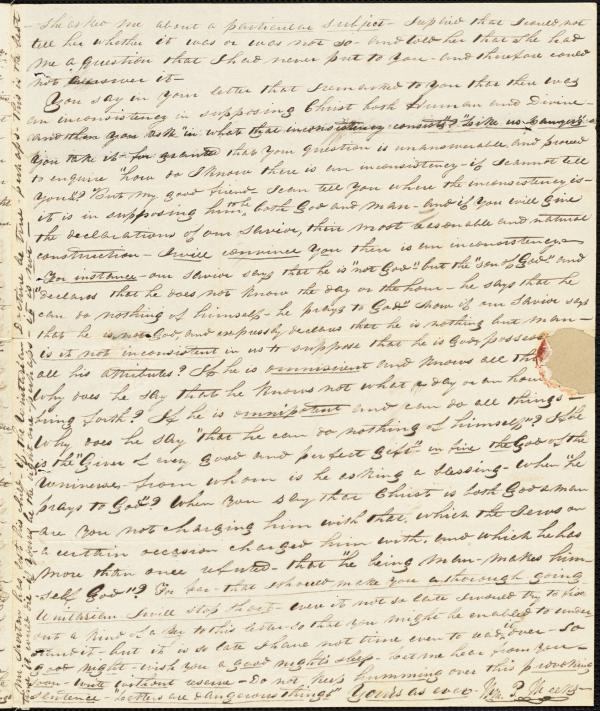 She asked me about a particular subject - I replied that I could not
tell her whether it was or was not so - and told her that she had
me a question that I had never put to you - and therefore could
not answer it -
You say in your letter that I remarked to you that there was
an inconsistency in supposing Christ both Human and Divine -
and then you ask "in what that inconsistency consists"?
You take it for granted that your question is unanswerable, and proceed
to enquire "how do I know there is an inconsistency - if I cannot tell
you"? But my good friend - I can tell you where the inconsistency is -
it is in supposing him to be both God and man - and if you will give
the declarations of our Savior, their most reasonable and natural
construction - I will convince you there is an inconsistency -
For instance - our Savior says that he is "not God" but the "son of God" and
"declares that he does not know the day or the hour - he says that he
can do nothing of himself - he prays to God" Now if our Savior says
that he is not God, and expressly declares that he is nothing but man -
is it not inconsistent in us to suppose that he is God, possess
all his attributes? If he is omniscient and knows all th
why does he say that he knows not what a day or an hour
bring forth? If he is omnipotent and can do all things -
Why does he say "that he can do nothing of himself"? If he
is the "Giver of every good and perfect gift" in fine the God of the
Universe - from whom is he asking a blessing - when "he
prays to God"? When you say that Christ is both God & man
are you not charging him with that, which the Jews on
a certain occasion charged him with, and which he has
more than once refuted - that "he being man - makes him
self God"? For fear - that I should make you a thorough going
Unitarian - I will stop short - were it not so late I would try to
out a kind of a key to this letter so that you might be enabled to under
stand it - but it is so late I have not time even to read it over - So
good night - wish you a good night's sleep - let me hear from you -
write without reserve - Do not keep humming over this provoking
sentence - "Letters are dangerous things" Yours as ever - Wm. P.